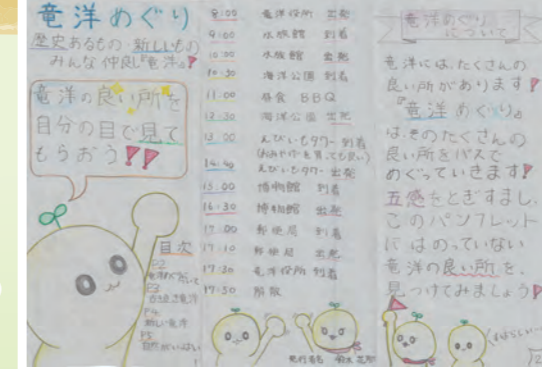 竜洋めぐり
歴史あるもの 新しいもの
みんな仲良し『竜洋』!
竜洋の良い所を
自分の目で見て
もらおう!!
目次
P2
P3
P4
新しい竜洋
P5
8:00 竜洋役所 出発
9:00 水族館 到着
10:00 水族館 出発
10:30 海洋公園 到着
11:00 昼食 BBQ
12:30 海洋公園 出発
13:00 えびいもタワー 到着
(おみやげを買っても良い)
14:40 えびいもタワー 出発
15:00 博物館 到着
16:30 博物館 出発
17:00 郵便局 到着
17:10 郵便局 出発
17:30 竜洋役所 到着
17:50 解散
発行者名
竜洋めぐり
について
竜洋には、たくさんの
良い所があります!
『竜洋めぐり』
は、そのたくさんの
良い所をバスで
めぐっていきます!
五感をとぎすまし、
このパンフレット
にはのっていない
竜洋の良い所を、
見つけてみましょう!
すばらしい…
2